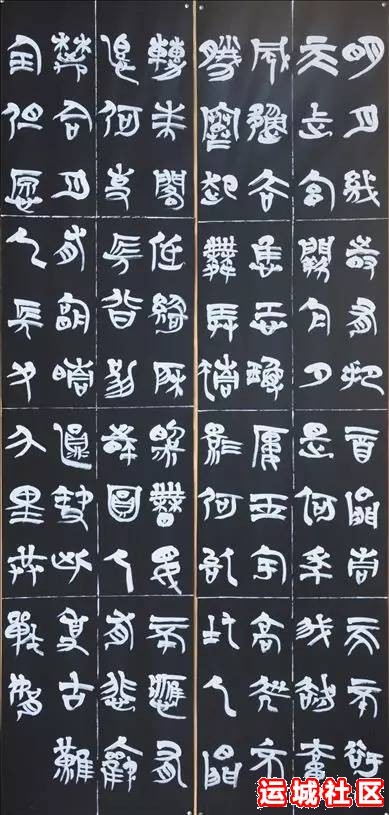 明月幾時有把酒問青天不知
天上宮闕今夕是何年我欲乘
風歸去惟恐瓊樓玉宇高處不
勝寒起舞弄清影何似在人間
轉朱閣低綺戶照無眠不應有
恨何事長向別時圓人有悲歡
離合月有陰晴圓缺此事古難
全但願人長久千里共嬋娟
运城社区